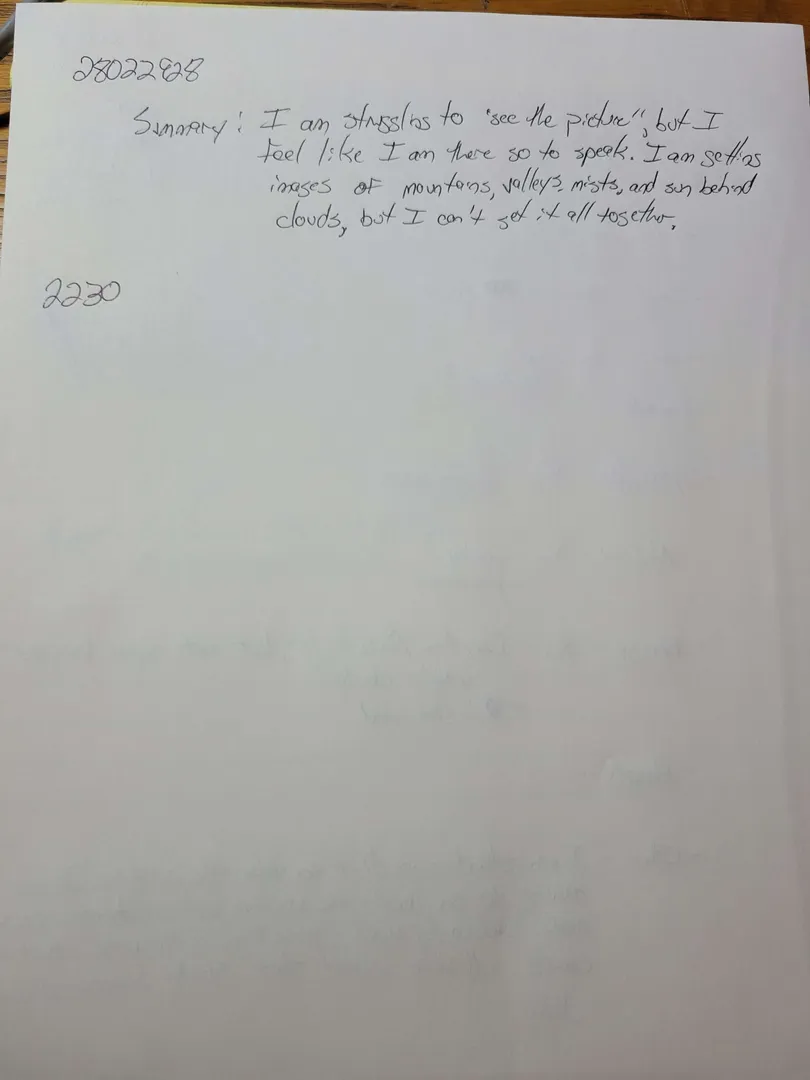 28022928
Summary: I am struggling to "see the picture", but I
feel like I am there so to speak. I am getting
images of mountains, valleys, mists, and sun behind
clouds, but I can't get it all together.
2230